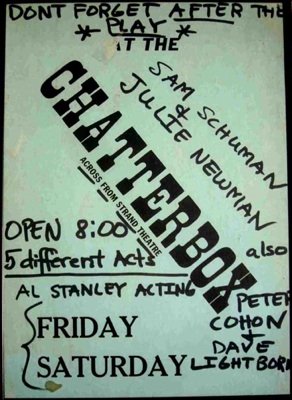 DONT FORGET AFTER THE
* PLAY *
AT THE
SAM SCHUMAN
&
JULIE NEWMAN
CHATTERBOX
ACROSS FROM STRAND THEATRE
OPEN 8:00
also
5 different Acts
AL STANLEY ACTING
PETER
COHON
FRIDAY
&
DAVE
SATURDAY
LIGHTBORN